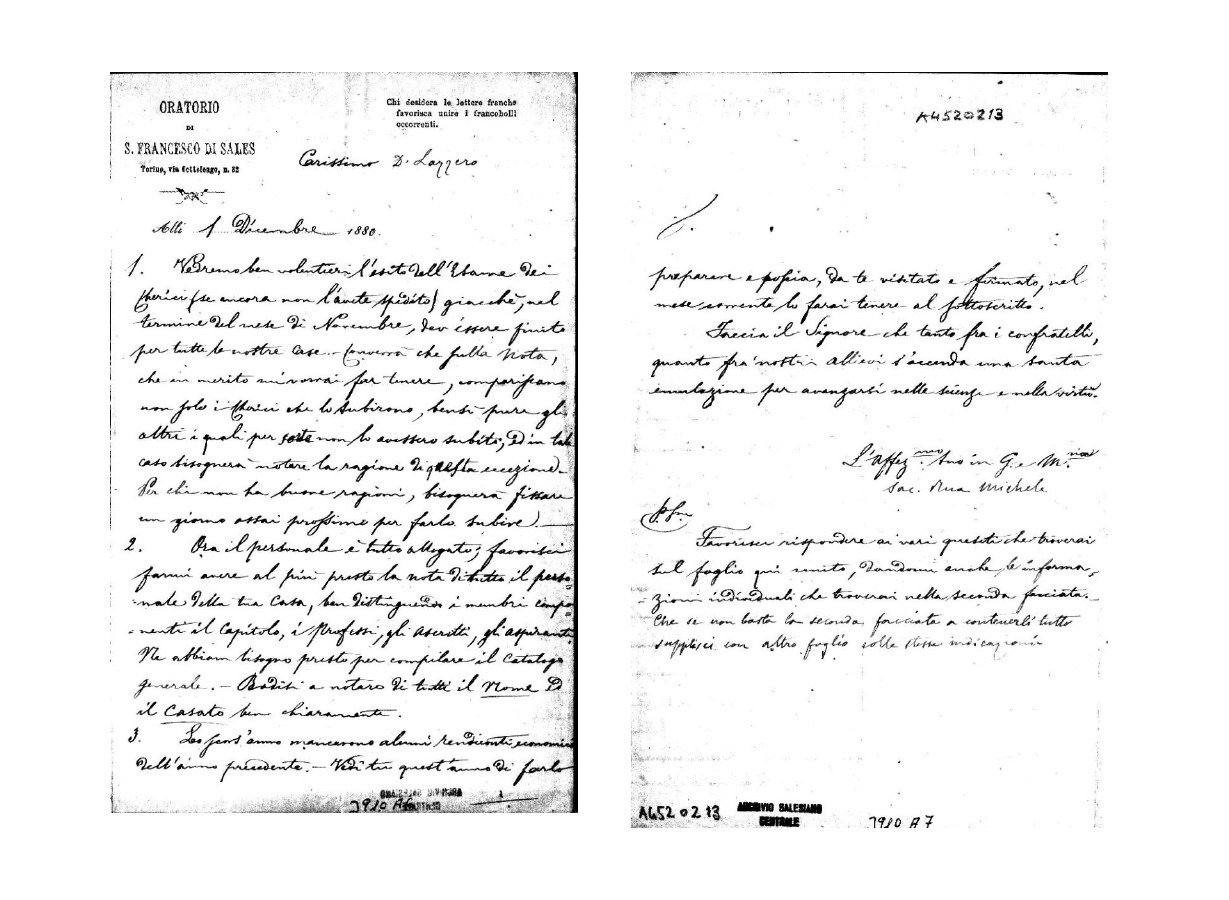 ORATORIO
DI
S. FRANCESCO DI SALES
Torino, via Cottolengo, n. 32
Chi desidera le lettere franche
favorisca unire i francobolli
occorrenti.
Carissimo D. Lazzero
Alli 1 Dicembre 1880.
1. Vedremo ben volentieri l'esito dell'Esame dei
Cherici (se ancora non l'avete spedito) giacchè, nel
termine del mese di Novembre, dev'essere finito
per tutte le nostre Case. Converrà che sulla Nota,
che in merito mi vorrai far tenere, compariscano
non solo i Cherici che lo subirono, bensì pure gli
altri i quali per sorte non lo avessero subito; ed in tal
caso bisognerà notare la ragione di questa eccezione.
Per chi non ha buone ragioni, bisognerà fissare
un giorno assai prossimo per farlo subire).
2. Ora il personale è tutto allogato; favorisci
farmi avere al più presto la nota di tutto il perso-
-nale della tua Casa, ben distinguendo i membri compo-
-nenti il Capitolo, i Professi, gli Ascritti, gli aspiranti.
Ne abbiam bisogno presto per compilare il Catalogo
generale. - Badisi a notare di tutti il Nome ed
il Casato ben chiaramente.
3. Lo scors'anno mancarono alcuni rendiconti economici
dell'anno precedente. - Vedi tu quest'anno di farlo
3910 A6
A4520213
preparare e poscia, da te visitato e firmato, nel
mese corrente lo farai tenere al sottoscritto.
Faccia il Signore che tanto fra i confratelli,
quanto fra' nostri allievi s'accenda una santa
emulazione per avanzarsi nelle scienze e nella virtù.
L'Affez.mo tuo in G. e M.
Sac. Rua Michele
Favorisci rispondere ai vari quesiti che troverai
sul foglio qui unito, dandomi anche le informa-
-zioni individuali che troverai nella seconda facciata.
Che se non basta la seconda facciata a contenerli tutti
supplisci con altro foglio colle stesse indicazioni
A4520213
ARCHIVIO SALESIANO
CENTRALE
3910 A7